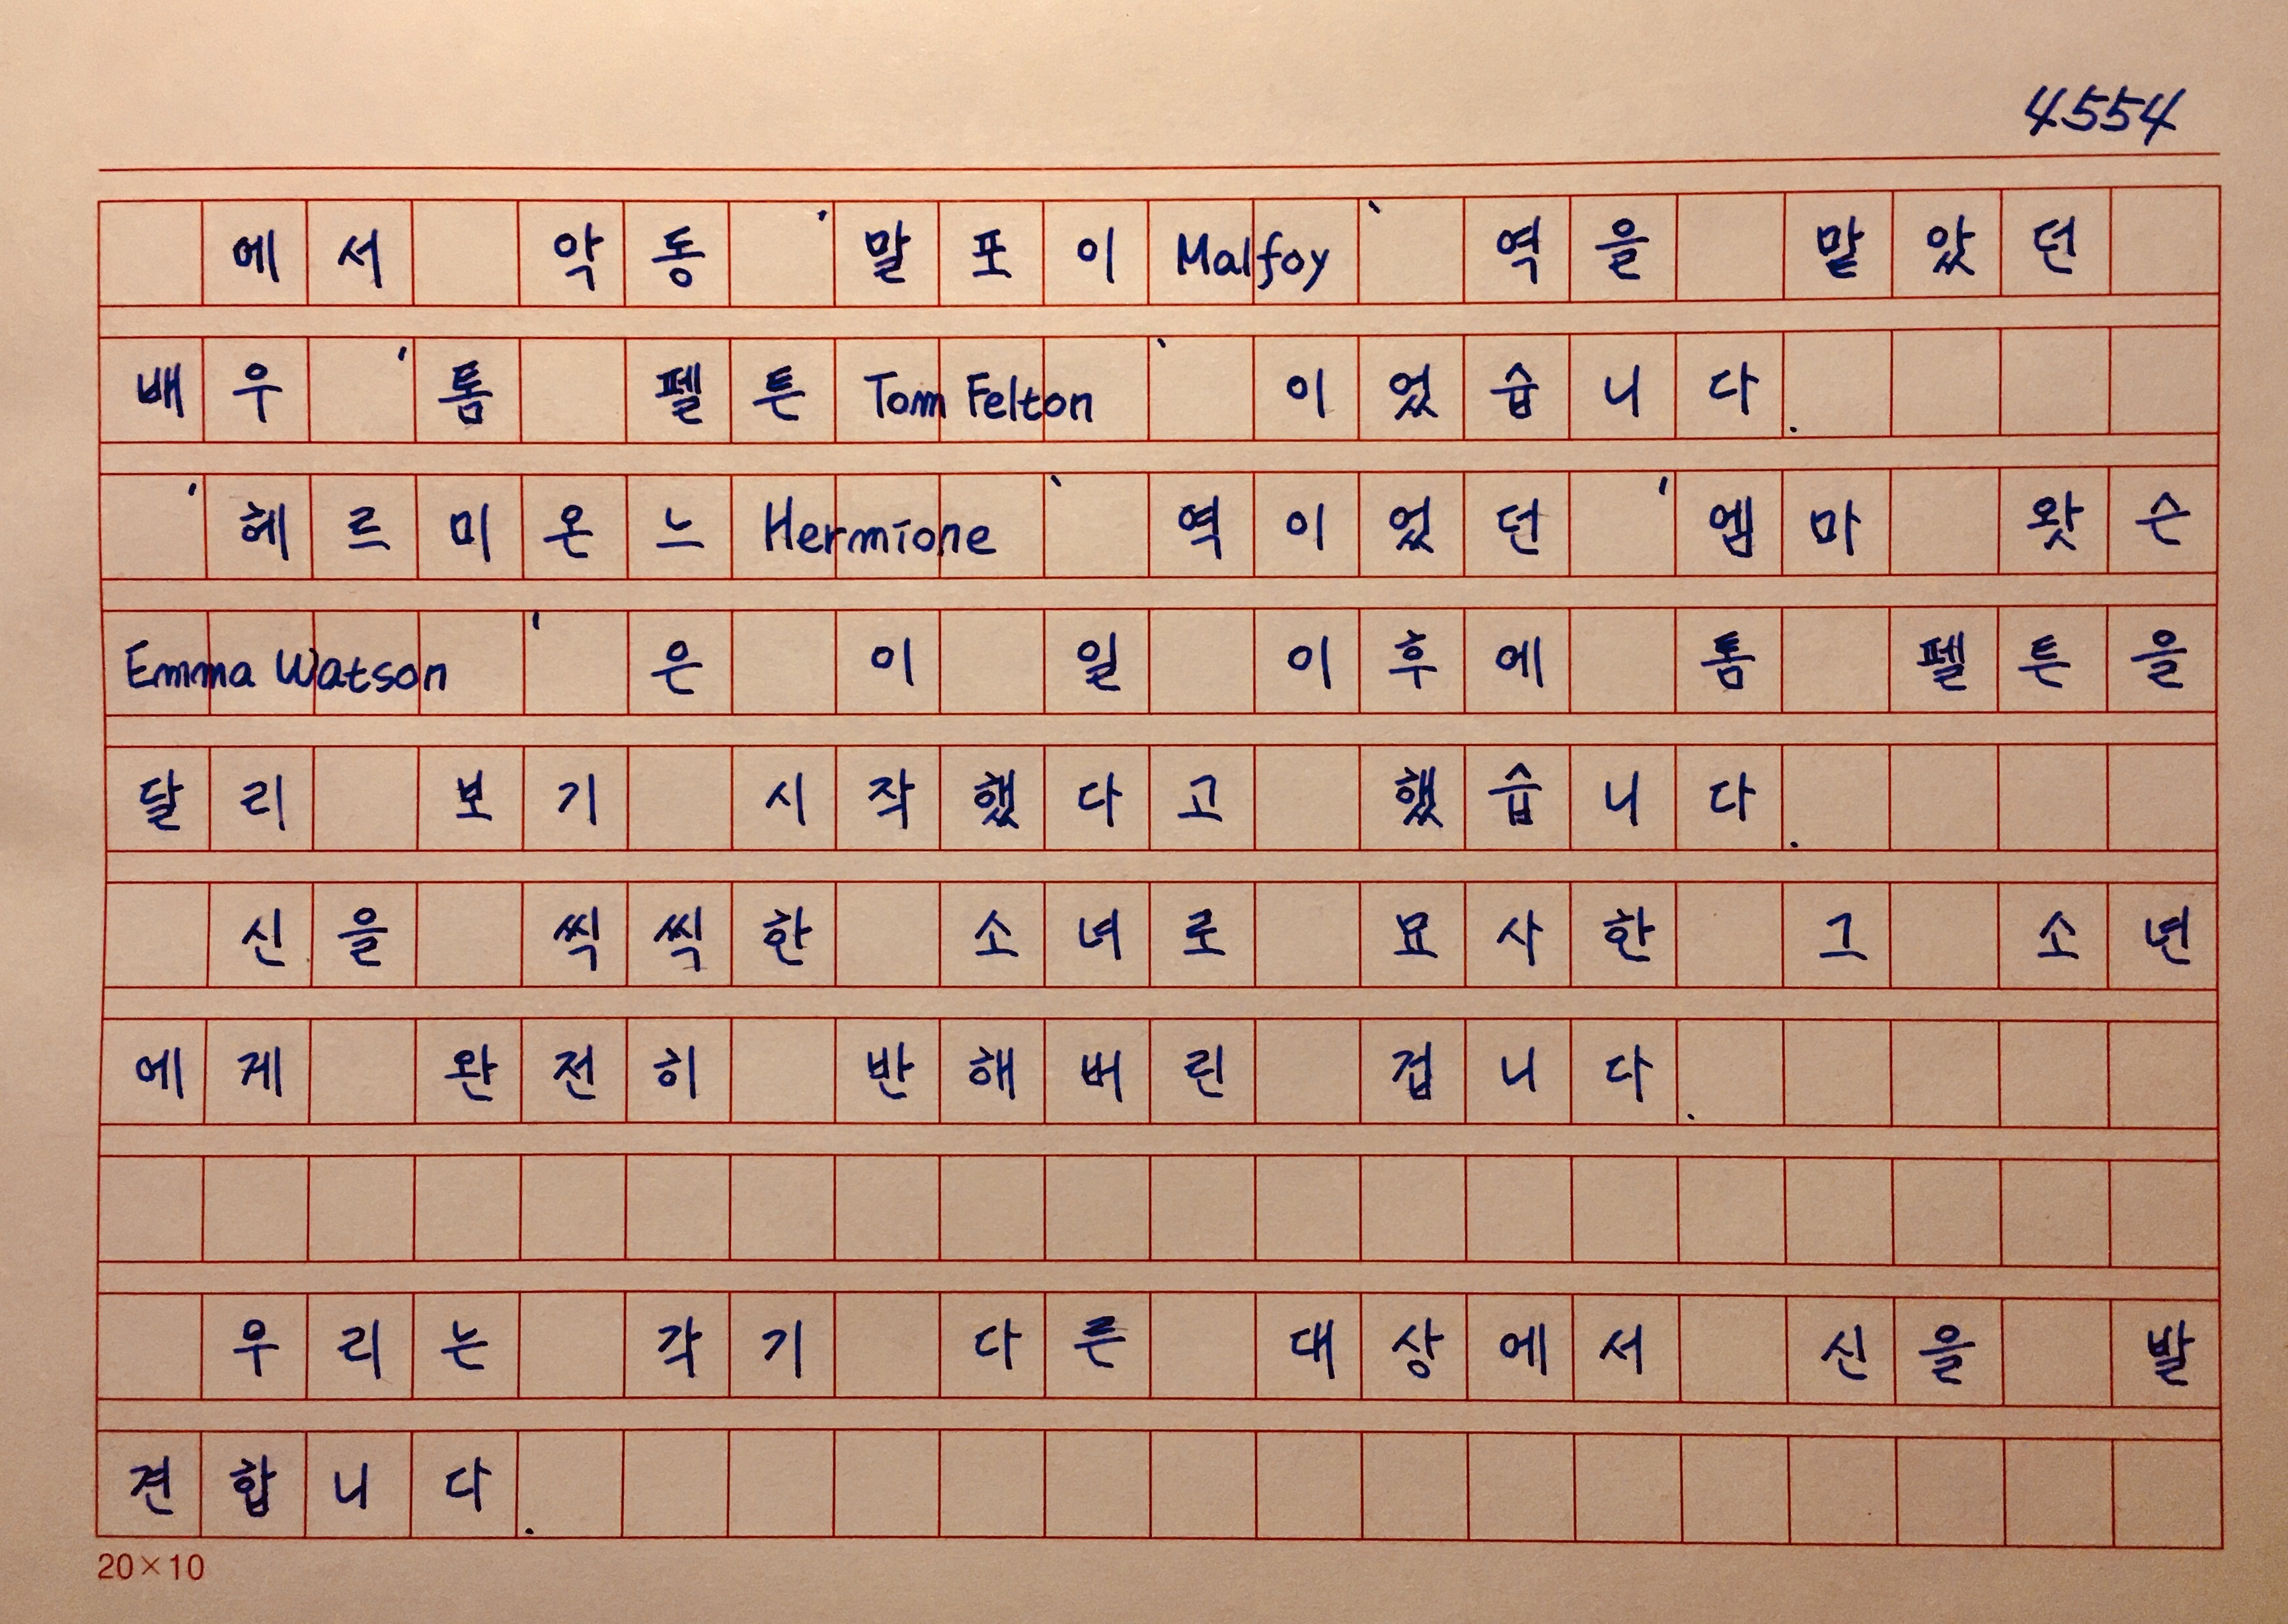 4554
에서 악동 '말포이Malfoy' 역을 맡았던
배우 '톰 펠튼Tom Felton' 이었습니다.
'헤르미온느Hermione' 역이었던 '엠마 왓슨
Emma Watson' 은 이 일 이후에 톰 펠튼을
달리 보기 시작했다고 했습니다.
신을 씩씩한 소녀로 묘사한 그 소년
에게 완전히 반해버린 겁니다.
우리는 각기 다른 대상에서 신을 발
견합니다.
20×10